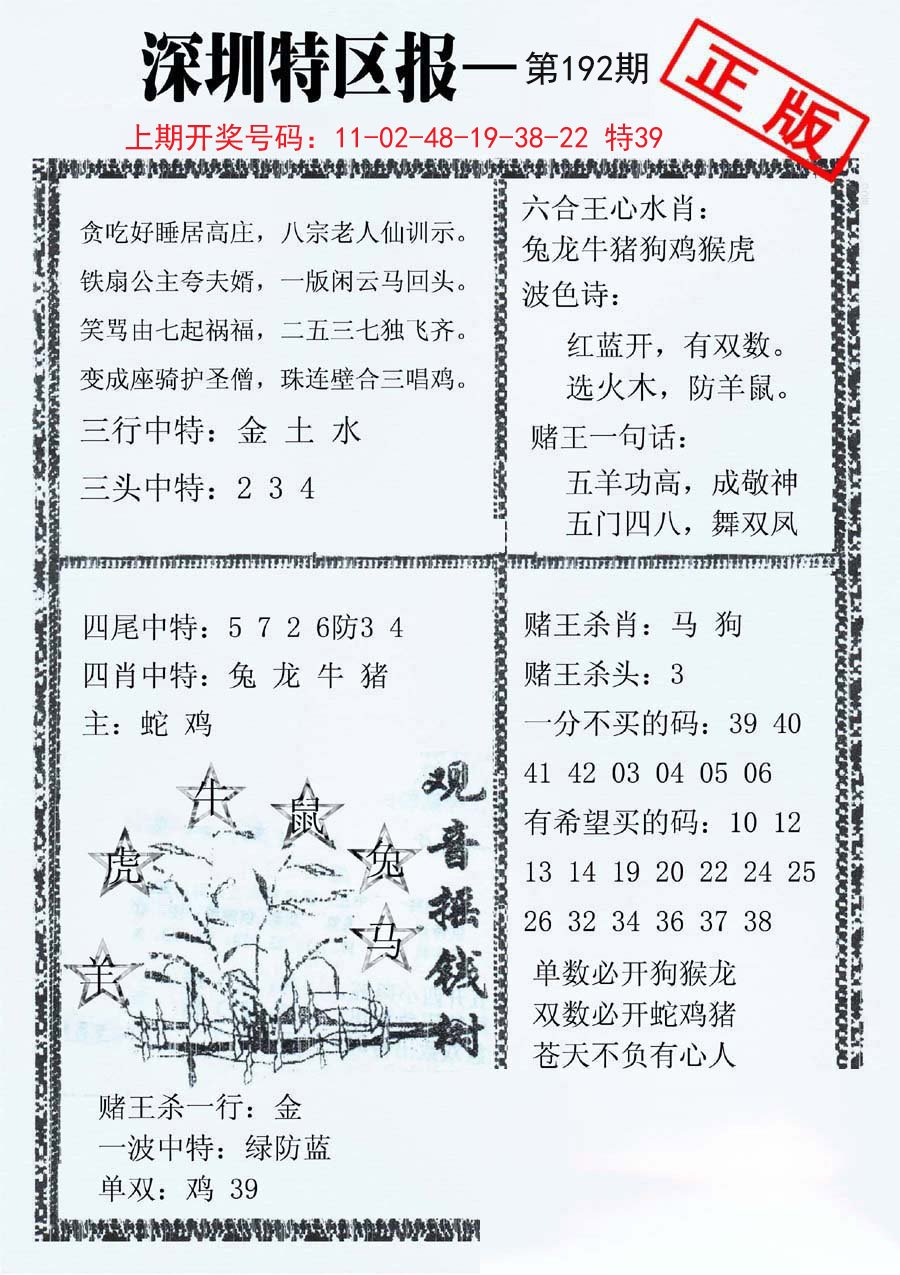 深圳特区报—第192期
正版
上期开奖号码：11-02-48-19-38-22 特39
贪吃好睡居高庄，八宗老人仙训示。
铁扇公主夸夫婿，一版闲云马回头。
笑骂由七起祸福，二五三七独飞齐。
变成座骑护圣僧，珠连壁合三唱鸡。
三行中特：金 土 水
三头中特：2 3 4
六合王心水肖：
兔龙牛猪狗鸡猴虎
波色诗：
红蓝开，有双数。
选火木，防羊鼠。
赌王一句话：
五羊功高，成敬神
五门四八，舞双凤
四尾中特：5 7 2 6防3 4
四肖中特：兔 龙 牛 猪
主：蛇 鸡
牛
鼠
虎
兔
马
羊
观音摇钱树
赌王杀一行：金
一波中特：绿防蓝
单双：鸡 39
赌王杀肖：马 狗
赌王杀头：3
一分不买的码：39 40
41 42 03 04 05 06
有希望买的码：10 12
13 14 19 20 22 24 25
26 32 34 36 37 38
单数必开狗猴龙
双数必开蛇鸡猪
苍天不负有心人